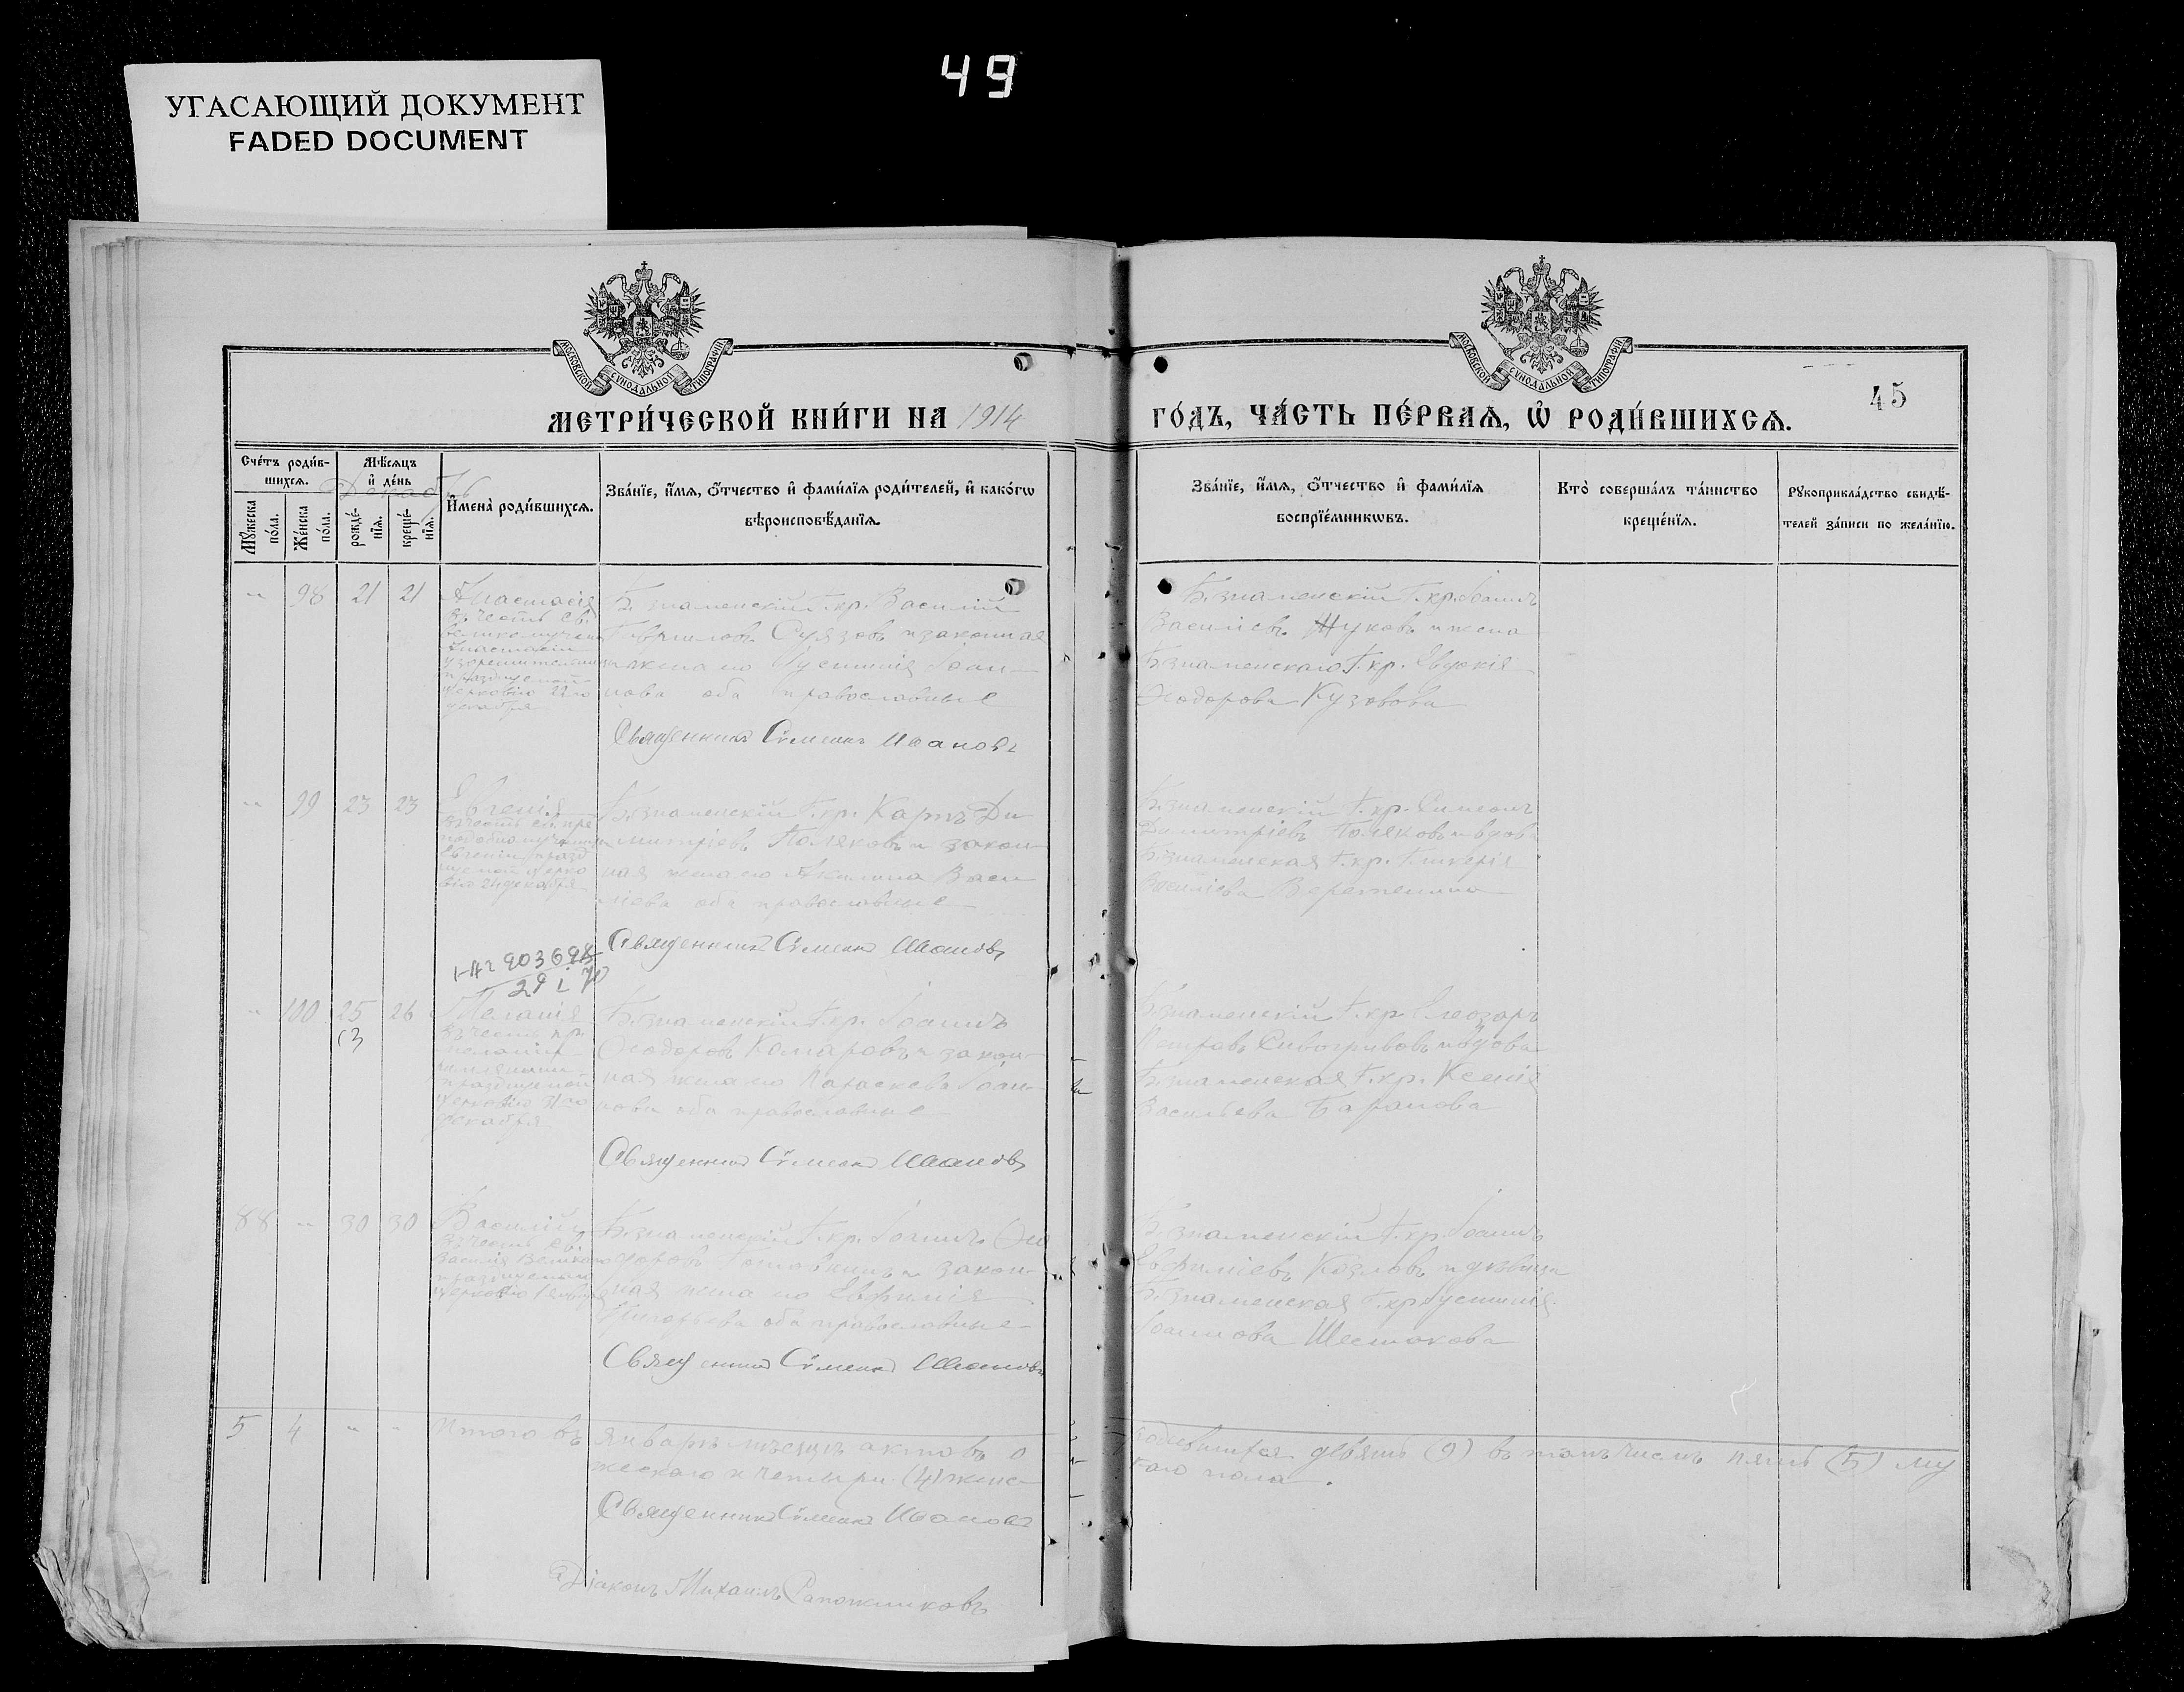 49
УГАСАЮЩИЙ ДОКУМЕНТ
FADED DOCUMENT
МОСКОВСКОЙ СѴНОДАЛЬНОЙ ТИПОГРАФІИ
МОСКОВСКОЙ СѴНОДАЛЬНОЙ ТИПОГРАФІИ
45
МЕТРИ́ЧЕСКОЙ КНИ́ГИ НА 1914
ГО́ДЪ, ЧА́СТЬ ПЕ́РВАѦ, Ѽ РОДИ́ВШИХСѦ.
Сче́тъ роди́в-
шихсѧ.
Мꙋ́жеска по́ла.
Же́нска по́ла.
Мѣ́сѧцъ
и҆ де́нь
Декабрь
рожде́-нїѧ.
креще́-нїѧ.
И҆мена̀ роди́вшихсѧ.
Зва́нїе, и҆́мѧ, ѻ҆́тчество и҆ фами́лїѧ роди́телей, и҆ како́гѡ
вѣроисповѣ́данїѧ.
Зва́нїе, и҆́мѧ, ѻ҆́тчество и҆ фами́лїѧ
воспрїе́мникѡвъ.
Кто̀ соверша́лъ та́инство
креще́нїѧ.
Рꙋкоприкла́дство свидѣ́-
телей за́писи по жела́нїю.
" 98 21 21
Анастасія
въ честь св.
великомучен
Анастасіи
узорешительницы
празднуемой
церковію 22го
декабря
Б. знаменскій Г. кр. Василій
Гавриловъ Суязовъ и законная
жена его Іустинія Іоан-
нова оба православные
Священникъ Симеонъ Ивановъ
Б. знаменскій Г. кр. Іоаннъ
Василіевъ Жуковъ и жена
Б. знаменскаго Г. кр. Евдокія
Ѳеодорова Кузовова
" 99 23 23
Евгенія
въ честь св. пре
подобномученицы
Евгеніи празд
нуемой церко
вію 24 декабря
Б. знаменскій Г. кр. Карпъ Ди
митріевъ Поляковъ и закон-
ная жена его Акилина Васи
ліева оба православные
Священникъ Симеонъ Ивановъ
Б. знаменскій Г. кр. Симеонъ
Димитріевъ Поляковъ и вдова
Б. знаменская Г. кр. Гликерія
Василіева Веретенина
29 I 70
" 100 25 26
Меланія
въ честь пр.
Меланіи
римляныни
празднуемой
церковію 31го
декабря
Б. знаменскій Г. кр. Іоаннъ
Ѳеодоровъ Комаровъ и закон-
ная жена его Параскева Іоан-
нова оба православные
Священникъ Симеонъ Ивановъ
Б. знаменскій Г. кр. Елеазаръ
Петровъ Сивогривовъ и вдова
Б. знаменская Г. кр. Ксенія
Васильева Баранова
88 " 30 30
Василій
въ честь св.
Василія Великаго
празднуемаго
церковію 1 января
Б. знаменскій Г. кр. Іоаннъ Ѳео
доровъ Головкинъ и закон-
ная жена его Евфимія
Григорьева оба православные
Священникъ Симеонъ Ивановъ
Б. знаменскій Г. кр. Іоаннъ
Евфиміевъ Козловъ и дѣвица
Б. знаменская Г. кр. Іустинія
Іоаннова Шестакова
5 4 " " Итого въ январѣ мѣсяцѣ актовъ о родившихся девять (9) въ томъ числѣ пять (5) му
жескаго и четыре (4) женс- каго пола.
Священникъ Симеонъ Ивановъ
Діаконъ Михаилъ Сапожниковъ